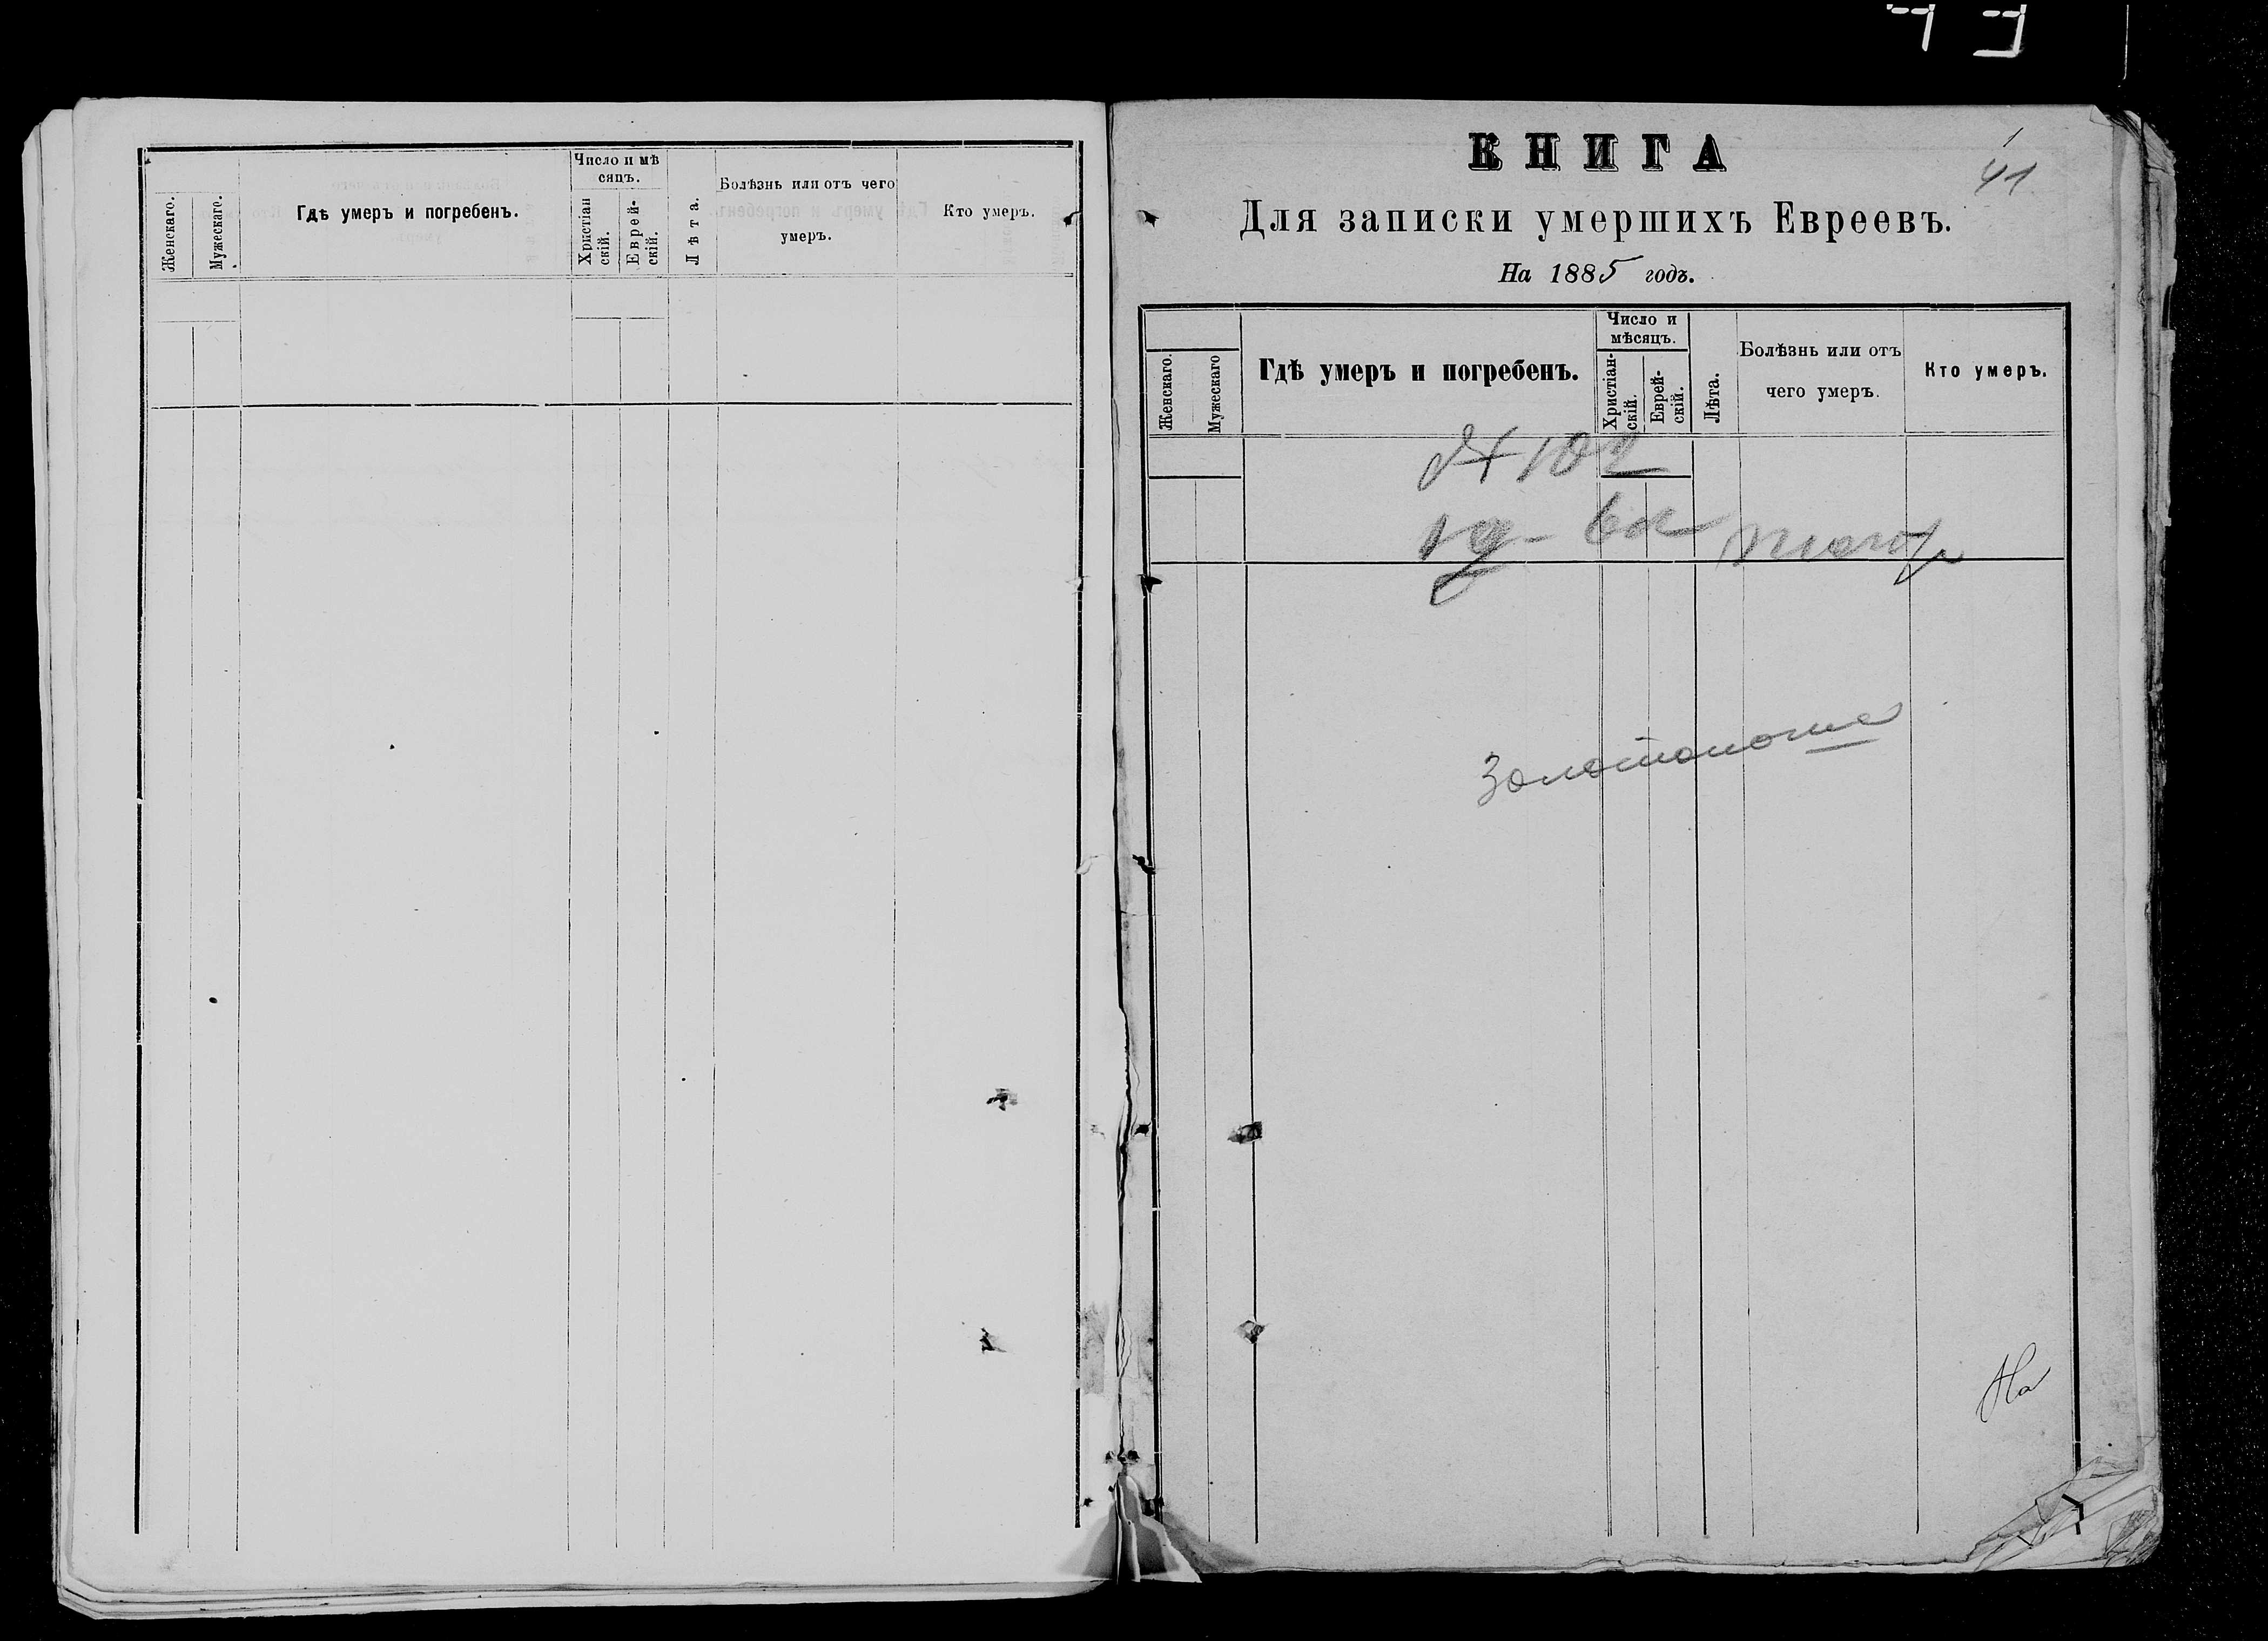 Женскаго.
Мужескаго.
Гдѣ умеръ и погребенъ.
Число и мѣ
сяцъ.
Христіан
скій.
Еврей-
скій.
Лѣта.
Болѣзнь или отъ чего
умеръ.
Кто умеръ.
КНИГА
41
Для записки умершихъ Евреевъ.
На 1885 годъ.
Женскаго.
Мужескаго
Гдѣ умеръ и погребенъ.
Число и
мѣсяцъ.
Христіан-
скій.
Еврей-
скій.
Лѣта.
Болѣзнь или отъ
чего умеръ.
Кто умеръ.
№ 102
Золотоноша
На